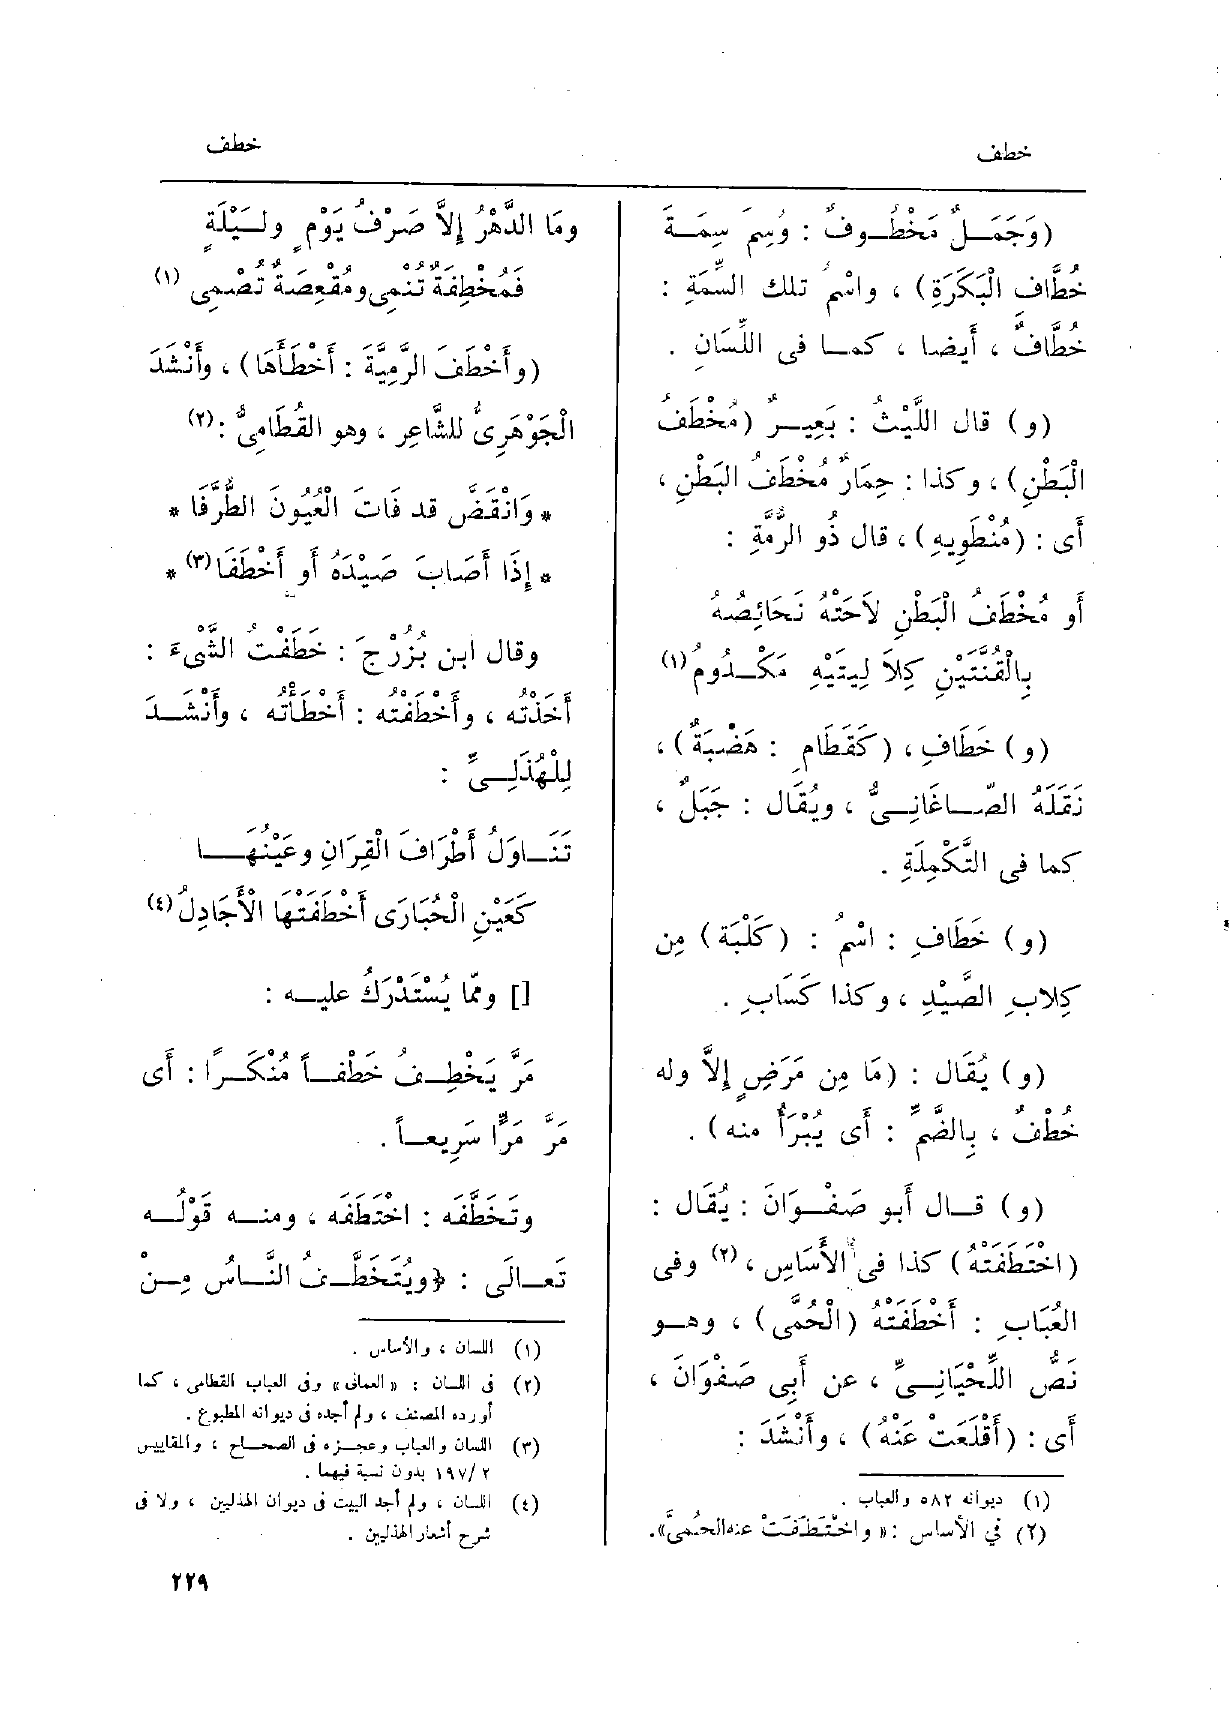 خطف
(وَجَمَــلٌ مَخْطُــوفٌ : وُسِمَ سِمَــةَ
خُطَّافِ الْبَكَرَةِ) ، واسْمُ تلك السِّمَةِ :
خُطَّافٌ ، أَيضا ، كمــا فى اللِّسَانِ .
(و) قال اللَّيْثُ : بَعِيــرٌ (مُخْطَفُ
الْبَطْنِ) ، وكذا : حِمَارٌ مُخْطَفُ البَطْنِ ،
أَى : (مُنْطَوِيهِ) ، قال ذُو الرُّمَّةِ :
أَو مُخْطَفُ الْبَطْنِ لاَحَتْهُ نَحَائِصُهُ
بِالْقُنَّتَيْنِ كِلاَ لِيتَيْهِ مَكْــدُومُ(١)
(و) خَطَافِ ، (كَقَطَامِ : هَضْبَةٌ) ،
نَقَلَهُ الصَّــاغَانِــىُّ ، ويُقَال : جَبَلٌ ،
كما فى التَّكْمِلَةِ .
(و) خَطَافِ : اسْمُ : (كَلْبَة) مِن
كِلابِ الصَّيْدِ ، وكذا كَسَابِ .
(و) يُقَال : (مَا مِن مَرَضٍ إِلاَّ وله
خُطْفٌ ، بِالضَّمِّ : أَى يُبْرَأُ منه) .
(و) قــال أَبو صَفْــوَانَ : يُقَال :
(اخْتَطَفَتْهُ) كذا فى الأَسَاسِ ،(٢) وفى
العُبَابِ : أَخْطَفَتْهُ (الْحُمَّى) ، وهــو
نَصُّ اللِّحْيَانِــىِّ ، عن أَبِى صَفْوَانَ ،
أَى : (أَقْلَعَتْ عَنْهُ) ، وأَنْشَدَ :
(١) ديوانه ٥٨٢ والعباب .
(٢) في الأساس : « واخْتَطَفَتْ عنه الحُمىَّ».
خطف
ومَا الدَّهْرُ إِلاَّ صَرْفُ يَوْمٍ ولَــيْلَةٍ
فَمُخْطِفَةٌ تُنْمِى ومُقْعِصَةٌ تُصْمِى (١)
(وأَخْطَفَ الرَّمِيَّةَ : أَخْطَأَهَا) ، وأَنْشَدَ
الْجَوْهَرِىُّ للشَّاعِرِ ، وهو القُطَامِىُّ :(٢)
* وَانْقَضَّ قد فَاتَ الْعُيُونَ الطُّرَّفَا *
* إِذَا أَصَابَ صَيْدَهُ أَو أَخْطَفَا(٣) *
وقال ابن بُزُرْجَ : خَطَفْت الشَّىءَ :
أَخَذْتُه ، وأَخْطَفْتُه : أَخْطَأْتُه ، وأَنْشَــدَ
لِلْهُذَلِــىِّ :
تَنَــاوَلُ أَطْرَافَ الْقِرَانِ وعَيْنُهَــا
كَعَيْنِ الْحُبَارَى أَخْطَفَتْهَا الْأَجَادِلُ(٤)
[] وممَّا يُسْتَدْرَكُ عليــه :
مَرَّ يَخْطِــفُ خَطْفــاً مُنْكَــرًا : أَى
مَرَّ مَرًّا سَرِيعــاً .
وتَخَطَّفَه : اخْتَطَفَه ، ومنــه قَوْلُــه
تَعــالَى : ﴿ويُتَخَطَّــفُ النَّــاسُ مِــنْ
(١) اللسان ، والأساس .
(٢) فى اللسان : « العمانى» وفى العباب القطامى ، كما
أورده المصنف ، ولم أجده فى ديوانه المطبوع .
(٣) اللسان والعباب وعجــزه فى الصحــاح ، والمقاييس
٢ /١٩٧ بدون نسبة فيهما .
(٤) اللسان ، ولم أجد البيت فى ديوان الهذليين ، ولا فى
شرح أشعار الهذليين .
٢٢٩